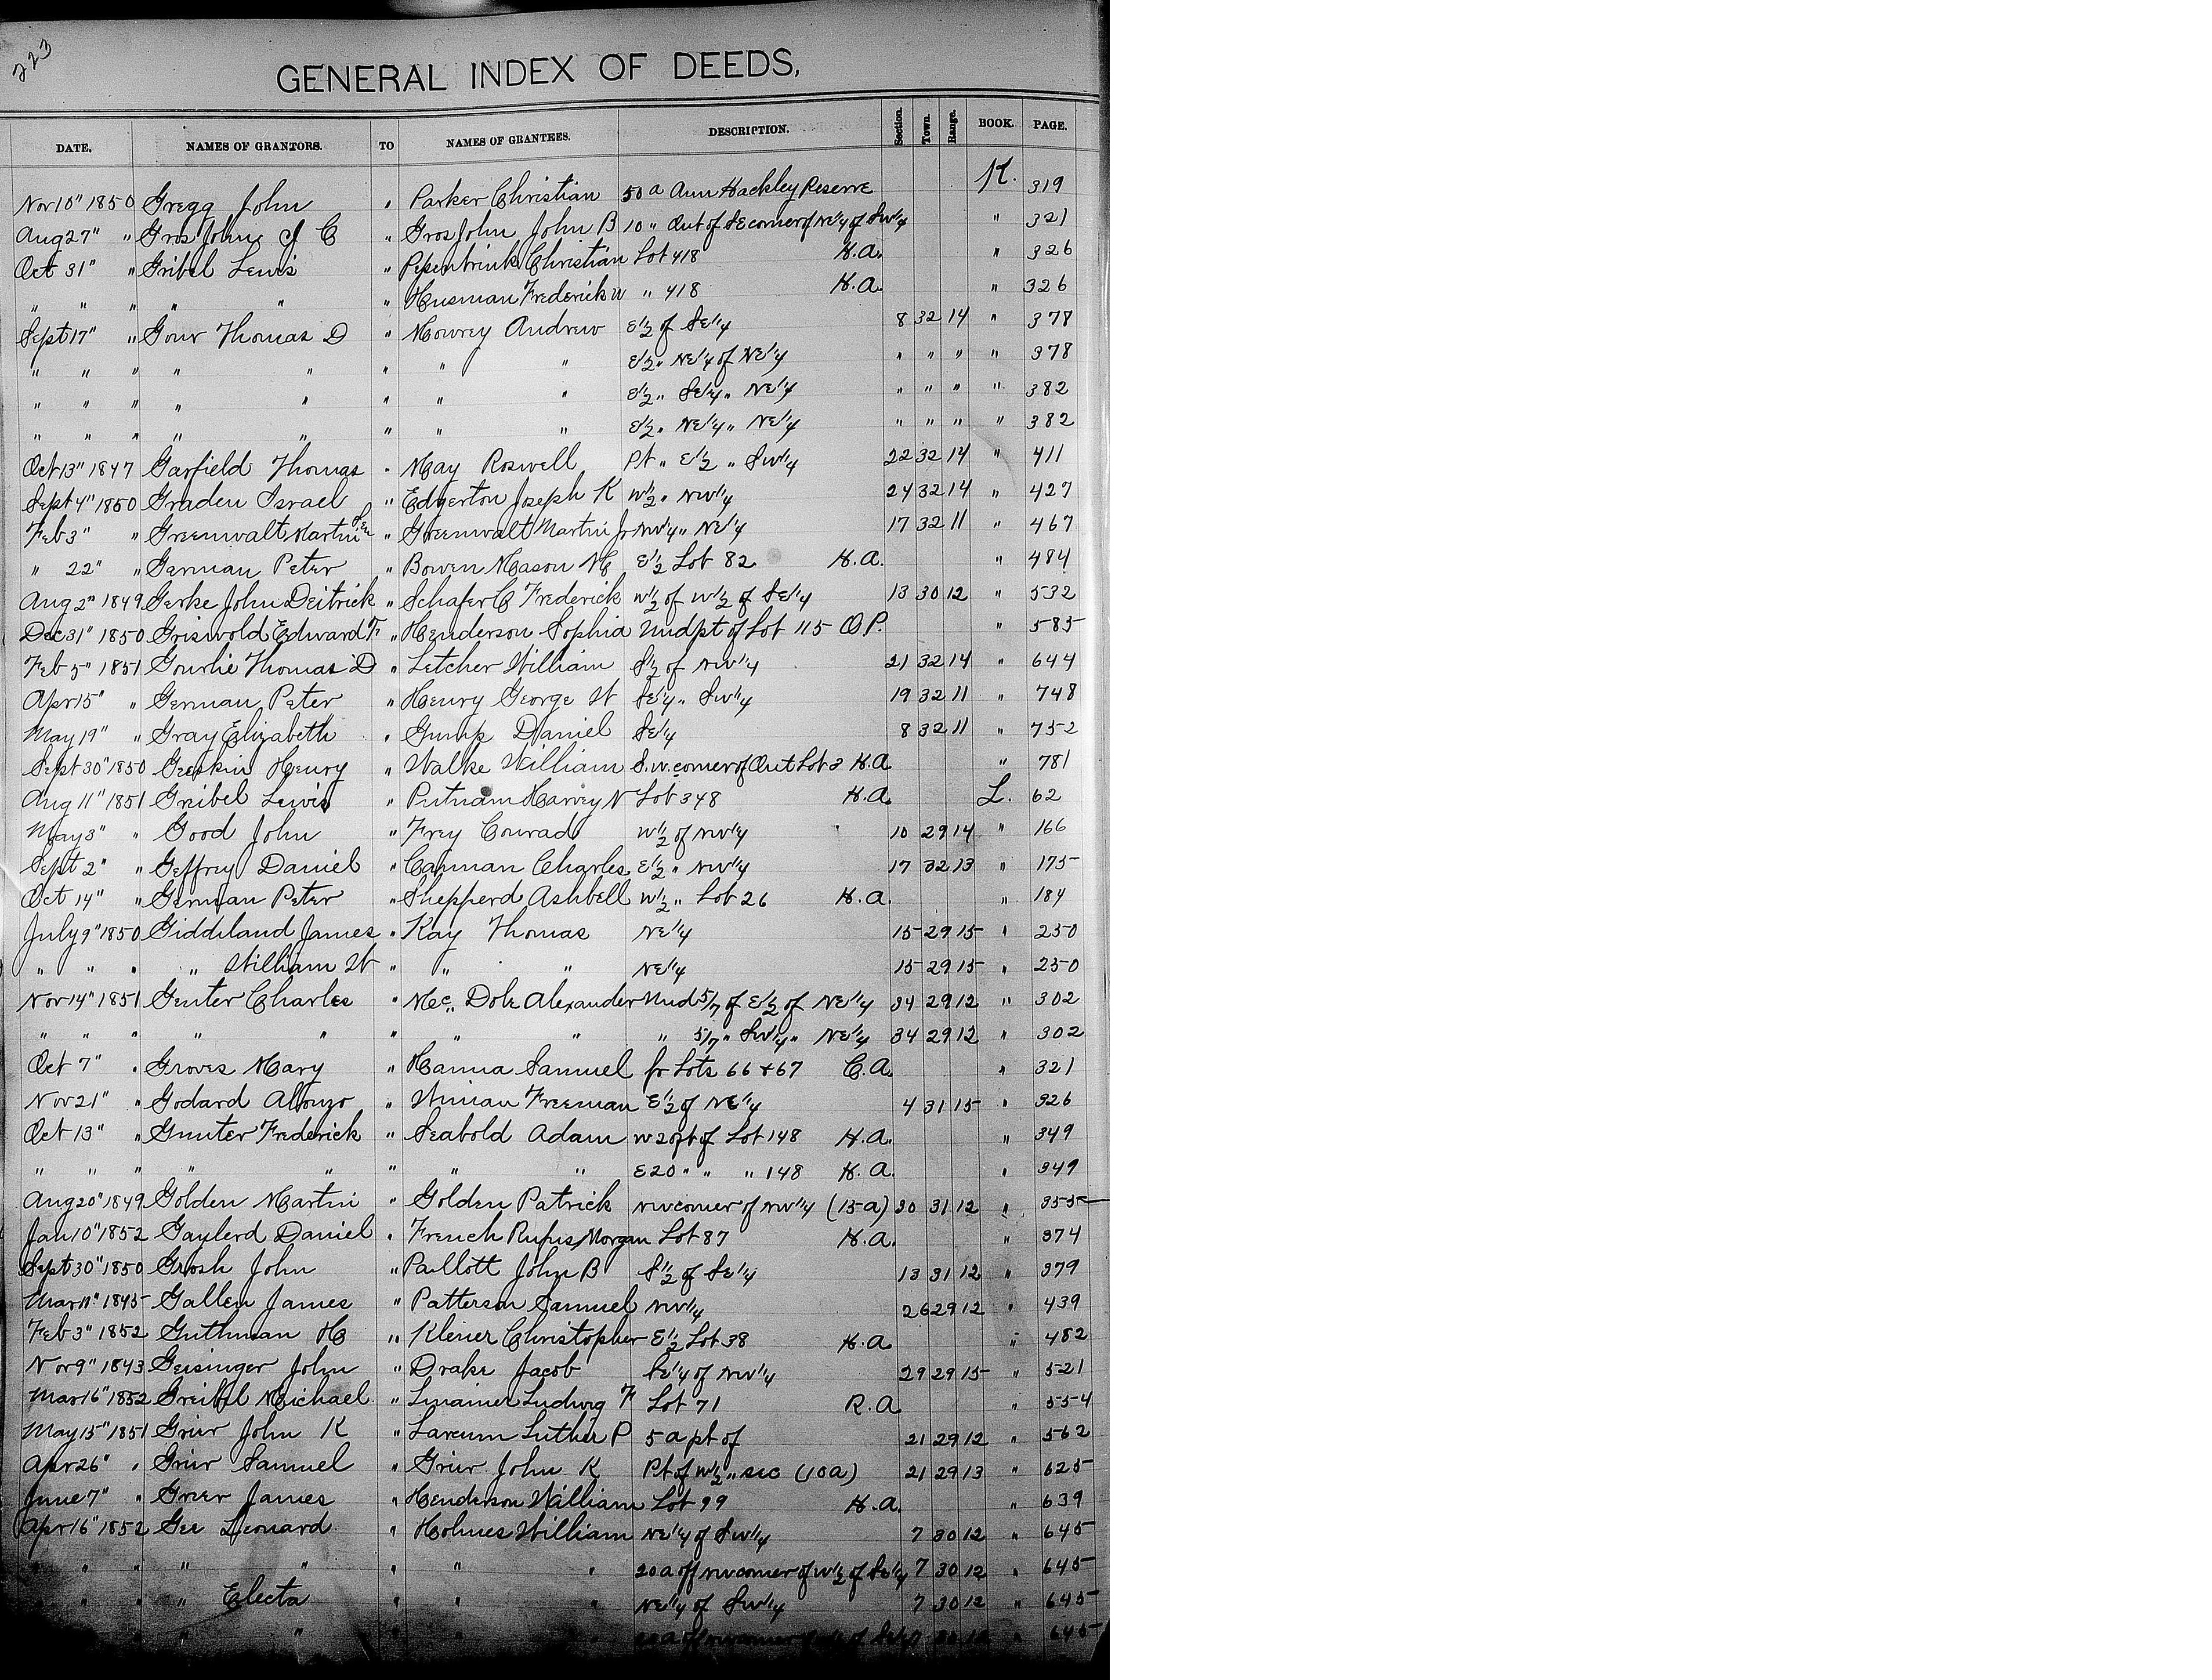 223
GENERAL INDEX OF DEEDS,
DATE. NAMES OF GRANTORS. TO NAMES OF GRANTEES. DESCRIPTION. Section. Town. Range. BOOK. PAGE.
Nov 10" 1850 Gregg John " Parker Christian 50 a Ann Hackley Reserve K. 319
Aug 27" " Gros John J C " Gros John John B 10 " Out of SE corner of NE 1/4 of SW 1/4 " 321
Oct 31" " Gribel Lewis " Christian Lot 418 H.A. " 326
" " " " " " Husman Frederick W " 418 H.A. " 326
Sept 17" " Gour Thomas D " Mowrey Andrew E 1/2 of SE 1/4 8 32 14 " 378
" " " " " " " " E 1/2 " NE 1/4 of NE 1/4 " " " " 378
" " " " " " " " E 1/2 " SE 1/4 " NE 1/4 " " " " 382
" " " " " " " " E 1/2 " NE 1/4 " NE 1/4 " " " " 382
Oct 13" 1847 Garfield Thomas " May Roswell Pt " E 1/2 " SW 1/4 22 32 14 " 411
Sept 4" 1850 Graden Israel " Edgerton Joseph K W 1/2 " NW 1/4 24 32 14 " 427
Feb 3" " Greenwalt Martin Sen " Greenwalt Martin Jr NW 1/4 " NE 1/4 17 32 11 " 467
" 22" " German Peter " Bowen Mason M E 1/2 Lot 82 H.A. " 484
Aug 2" 1849 Gerke John Deitrick " Schafer C Frederick W 1/2 of W 1/2 of SE 1/4 13 30 12 " 532
Dec 31" 1850 Griswold Edward F " Henderson Sophia Und pt of Lot 115 O.P. " 585
Feb 5" 1851 Gourlie Thomas D " Letcher William S 1/2 of NW 1/4 21 32 14 " 644
Apr 15" " German Peter " Henry George W SE 1/4 " SW 1/4 19 32 11 " 748
May 19" " Gray Elizabeth " Gump Daniel SE 1/4 8 32 11 " 752
Sept 30" 1850 Henry " Walke William S.W. corner of Out Lot 3 H.A. " 781
Aug 11" 1851 Greibel Lewis " Putnam Harvey N Lot 348 H.A. L. 62
May 3" " Good John " Frey Conrad W 1/2 of NW 1/4 10 29 14 " 166
Sept 2" " Geffrey Daniel " Canman Charles E 1/2 " NW 1/4 17 32 13 " 175
Oct 14" " German Peter " Shepperd Ashbell W 1/2 " Lot 26 H.A. " 184
July 9" 1850 Giddiland James " Kay Thomas NE 1/4 15 29 15 " 250
" " " " William W " " " NE 1/4 15 29 15 " 250
Nov 14" 1851 Genter Charles " Mc Dole Alexander Und 5/7 of E 1/2 of NE 1/4 34 29 12 " 302
" " " " " " " " " 5/7 " SW 1/4 " NE 1/4 34 29 12 " 302
Oct 7" " Groves Mary " Hanna Samuel fr Lots 66 + 67 C.A. " 321
Nov 21" " Godard Alonzo " Freeman E 1/2 of NE 1/4 4 31 15 " 326
Oct 13" " Gunter Frederick " Seabold Adam W 20 ft of Lot 148 H.A. " 349
" " " " " " " " E 20 " " " 148 H.A. " 349
Aug 20" 1849 Golden Martin " Golden Patrick NW corner of NW 1/4 (15 a) 30 31 12 " 355
Jan 10" 1852 Gaylerd Daniel " French Rufus Morgan Lot 87 H.A. " 374
Sept 30" 1850 Grosh John " Pallott John B S 1/2 of SE 1/4 13 31 12 " 379
Mar 11" 1845 Gallen James " Patterson Samuel NW 1/4 26 29 12 " 439
Feb 3" 1852 Guthman H " Klener Christopher E 1/2 Lot 38 H.A. " 482
Nov 9" 1843 Geisinger John " Drake Jacob SE 1/4 of NW 1/4 29 29 15 " 521
Mar 16" 1852 Greibel Michael " Ludwig F Lot 71 R.A. " 554
May 15" 1851 Grier John K " Larcum Luther P 5 a pt of 21 29 12 " 562
Apr 26" " Grier Samuel " Grier John K Pt of W 1/2 " sec (10 a) 21 29 13 " 625
June 7" " Grier James " Henderson William Lot 99 H.A. " 639
Apr 16" 1852 Gee Leonard " Holmes William NE 1/4 of SW 1/4 7 30 12 " 645
" " " " " " " " 20 a off NW corner of W 1/2 of SE 1/4 7 30 12 " 645
" " " " Electa " " " NE 1/4 of SW 1/4 7 30 12 " 645
" " " " " 645